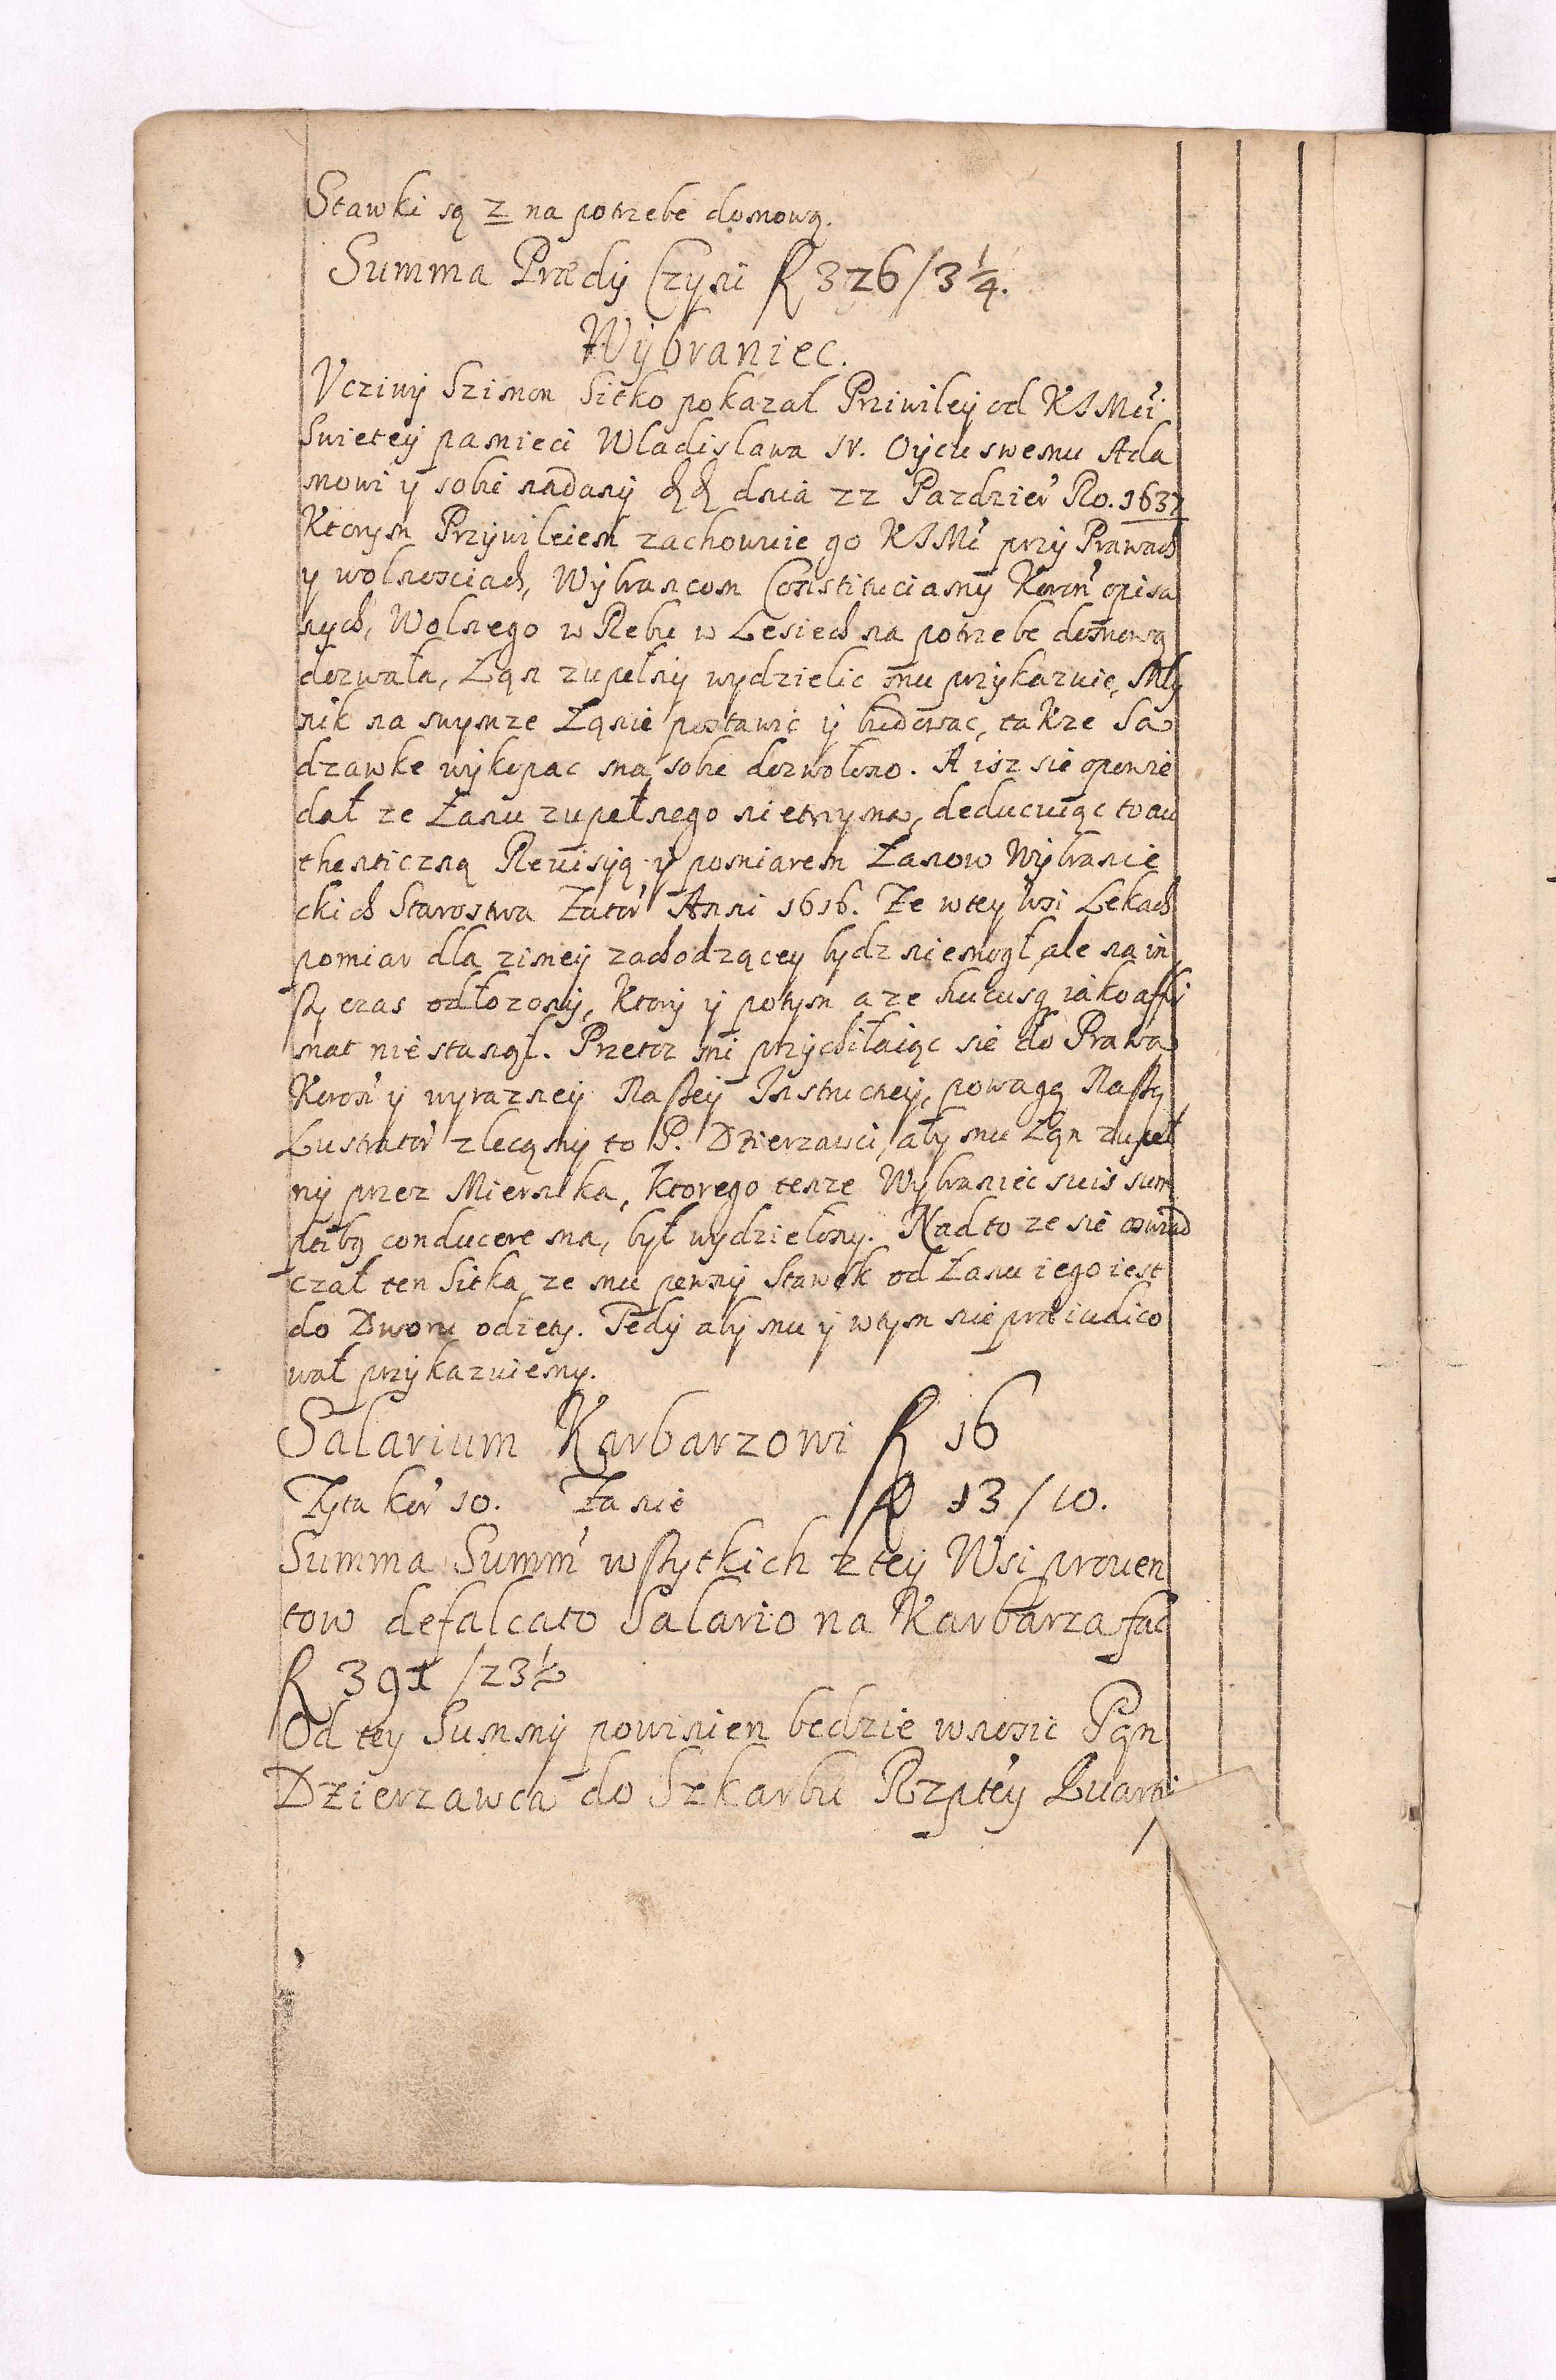 Stawki są 2 na potrzebe domową.
Summa Prædij Czyni R 326/3 1/4.
Wybraniec.
Vcziwy Szimon Sitko pokazal Priwiley od KJMći
Swietey pamieci Wladislawa IV. Oycu swemu Ada
mowi y sobie nadany dd dnia 22 Pazdzier Ro. 1637
Ktorym Przywileiem zachowuie go KJMć przy Prawach
y wolnosciach, Wybrancom Constituciamy Koron opisa
nych, Wolnego w Rebu w Lesiech na potrzebe domową
dozwala, Łąn zupełny wydzielic mu przykazuie, Mly
nik na swymze Łąnie postawic y budowac, takze Sa
dzawke wykopac ma sobie dozwolono. A isz sie opowie
dał ze Łanu zupełnego nietrzyma, deducuiąc to au
thenticzną Reuisyą y pomiarem Łanow Wybranie
ckich Starostwa Zator Anni 1616. Ze wtey wsi Lekach
pomiar dla zimey zachodzącey bydz niemogł, ale na in
szy czas odłozony, Ktory y potym aze hucusq iako affir
mat nie stanął. Przetoz mi przychilaiąc sie do Prawa
Koron y wyrazney Naszey Instructiey, powagą Naszą
Lustrator zlecąmy to P. Dzierzawci, aby mu Łąn zupeł
ny przez Miernika, Ktorego tenze Wybraniec suis sum
ptibq conducere ma, był wydzielony. Nad to ze sie oswiad
czał ten Sitka, ze mu pewny Stawek od Łanu iego iest
do Dworu odiety. Tedy aby mu y wtym nie præiudico
wał przykazuiemy.
Salarium Karbarzowi R 16
Zyta kor 10. Łanie R 13/10.
Summa Summ wszytkich z tey Wsi prouen
tow defalcato Salario na Karbarza fac
R 391 /23 1/2
Od tey Summy powinien bedzie wnosic Pąn
Dzierzawca do Szkarbu Rzptey Quarti